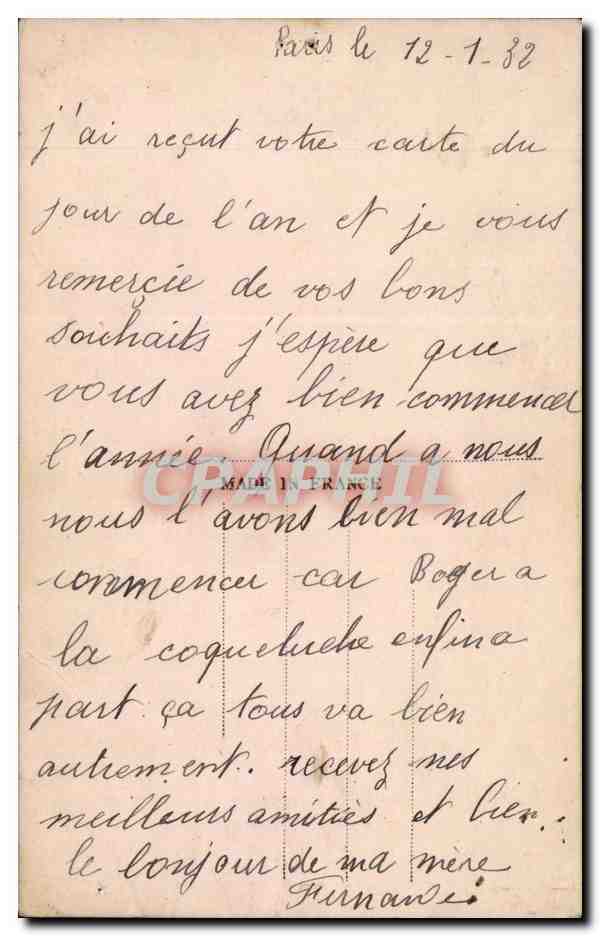 Paris le 12-1-32
j'ai reçut votre carte du
jour de l'an et je vous
remerçie de vos bons
souhaits j'espère que
vous avez bien commencer
l'année. Quand a nous
CPAPHIL
MADE IN FRANCE
nous l'avons bien mal
commencer car Roger a
la coqueluche enfin a
part ça tous va bien
autrement. recevez mes
meilleurs amitiés et bien
le bonjour de ma mère
Fernande